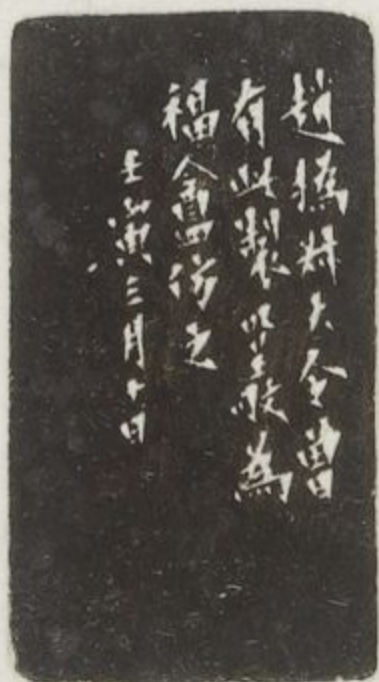 趙撝叔大令曾
有此製為
福盦仿之
壬寅三月十日